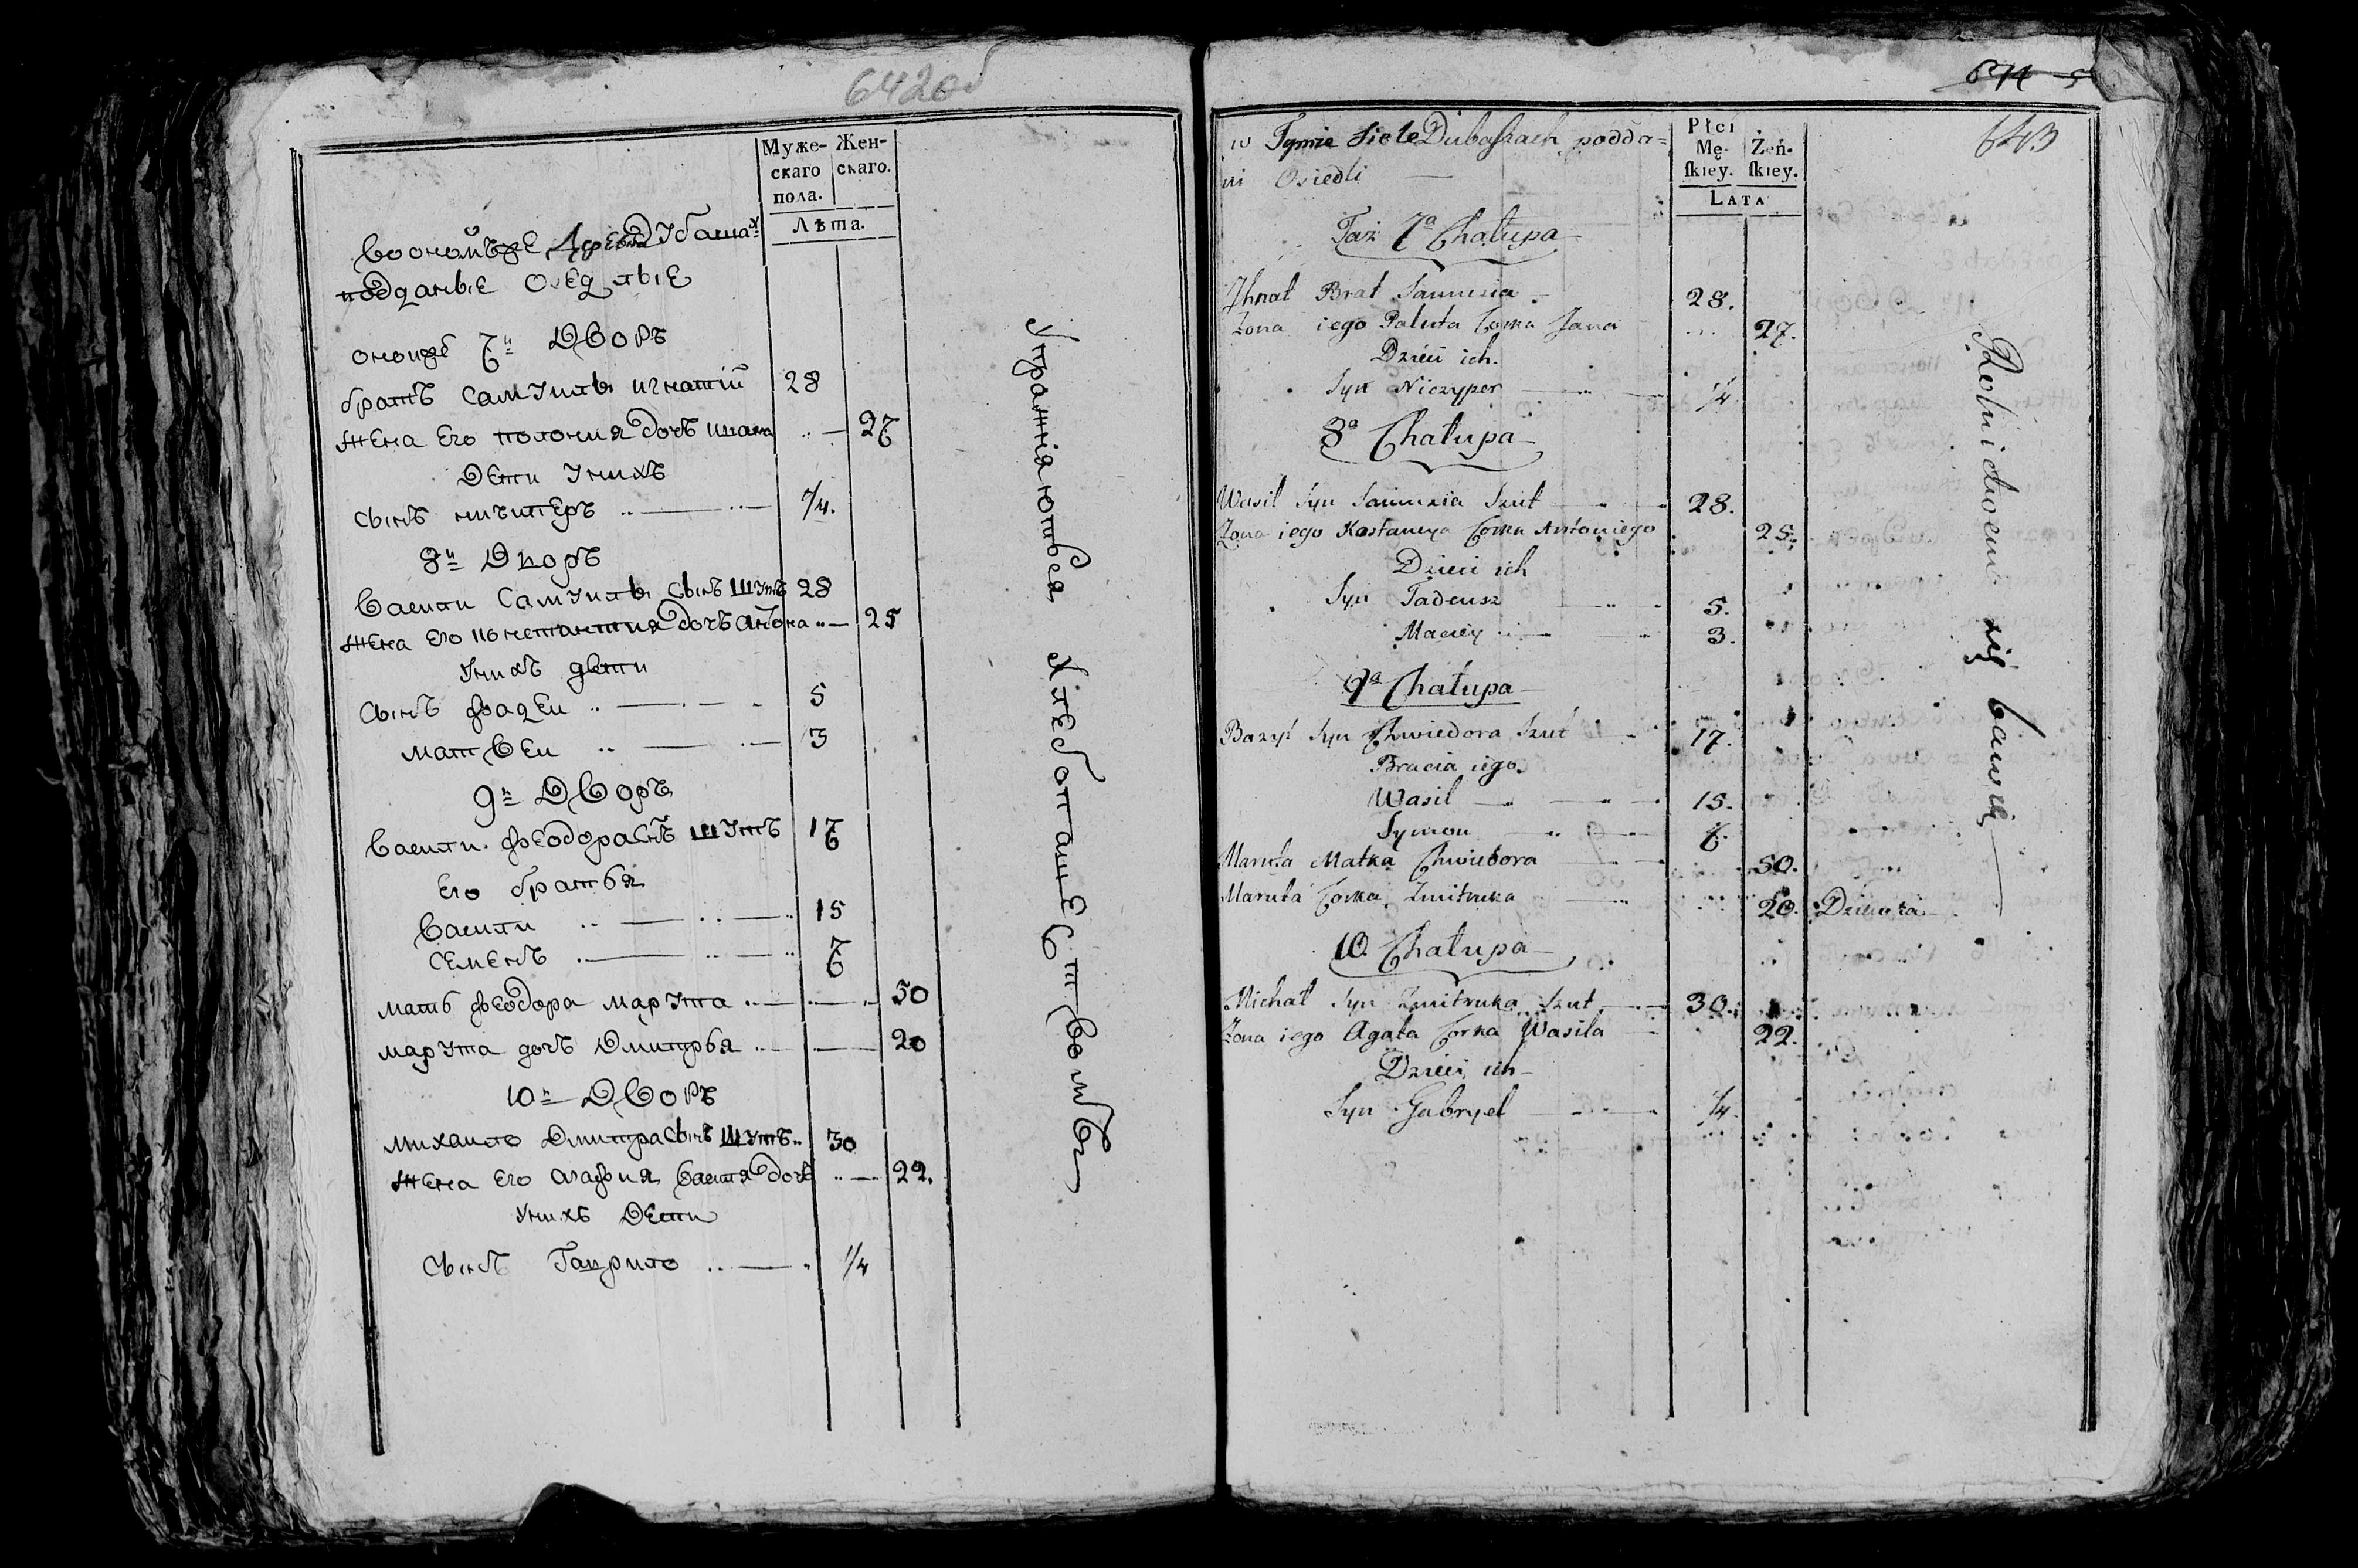 642об
Муже- Жен-
скаго скаго.
пола.
Лѣта.
Во онойъже Деревни Дубашах
подданые оседлые
онойже 7й Дворъ
братъ Самуилы игнатій 28
жена его полония дочъ ивана .. — 27
Дети унихъ
сынъ ничиперъ .. — .. — 1/4.
8й Дворъ
Васили Самуилы сынъ Шутъ 28
жена его констанция дочъ антона .. — 25
унихъ дети
сынъ фадеи .. — . — - 5
матвеи .. — .. — 3
9й Дворъ
Васили феодора снъ Шутъ 17
его братья
Васили .. — .. — .. 15
семенъ . — .. — .. 7
мать феодора марута .. — .. — .. 50
марута дочъ Дмитрья .. — — 20
10й Дворъ
михаило Дмитра сынъ Шутъ .. 30
жена его агафия Василя дочъ .. — 22.
унихъ Дети
сынъ Гаврило .. — . 1/4
Упражняются Хлебопашествомъ
674
643
w Tymże Siele Dubaszach podda=
ni Osiedli —
Płci
Mę- Żeń-
skiey. skiey.
LATA
Taż 7a Chałupa
Jhnat Brat Samusia 28.
Zona iego Paluta Corka Jana ... 27.
Dzieci ich.
Syn Niczyper — .. — 1/4
8a Chałupa
Wasil Syn Samusia Szut 28.
Zona iego Kastancya Corka Antoniego 25.
Dzieci ich
Syn Tadeusz — .. - 5.
Maciey .. — .. 3.
9a Chałupa
Bazyl Syn Chwiedora Szut 17.
Bracia iego.
Wasil — — .. — 15.
Symon — .. — 7.
Maruta Matka Chwiedora — 50.
Maruta Corka Zmitruka — 20. Dziewka
10. Chałupa
Michał Syn Zmitruka Szut 30.
Zona iego Agata Corka Wasila — 22.
Dzieci ich
Syn Gabryel — .. — 1/4.
Rolnictwem się bawią